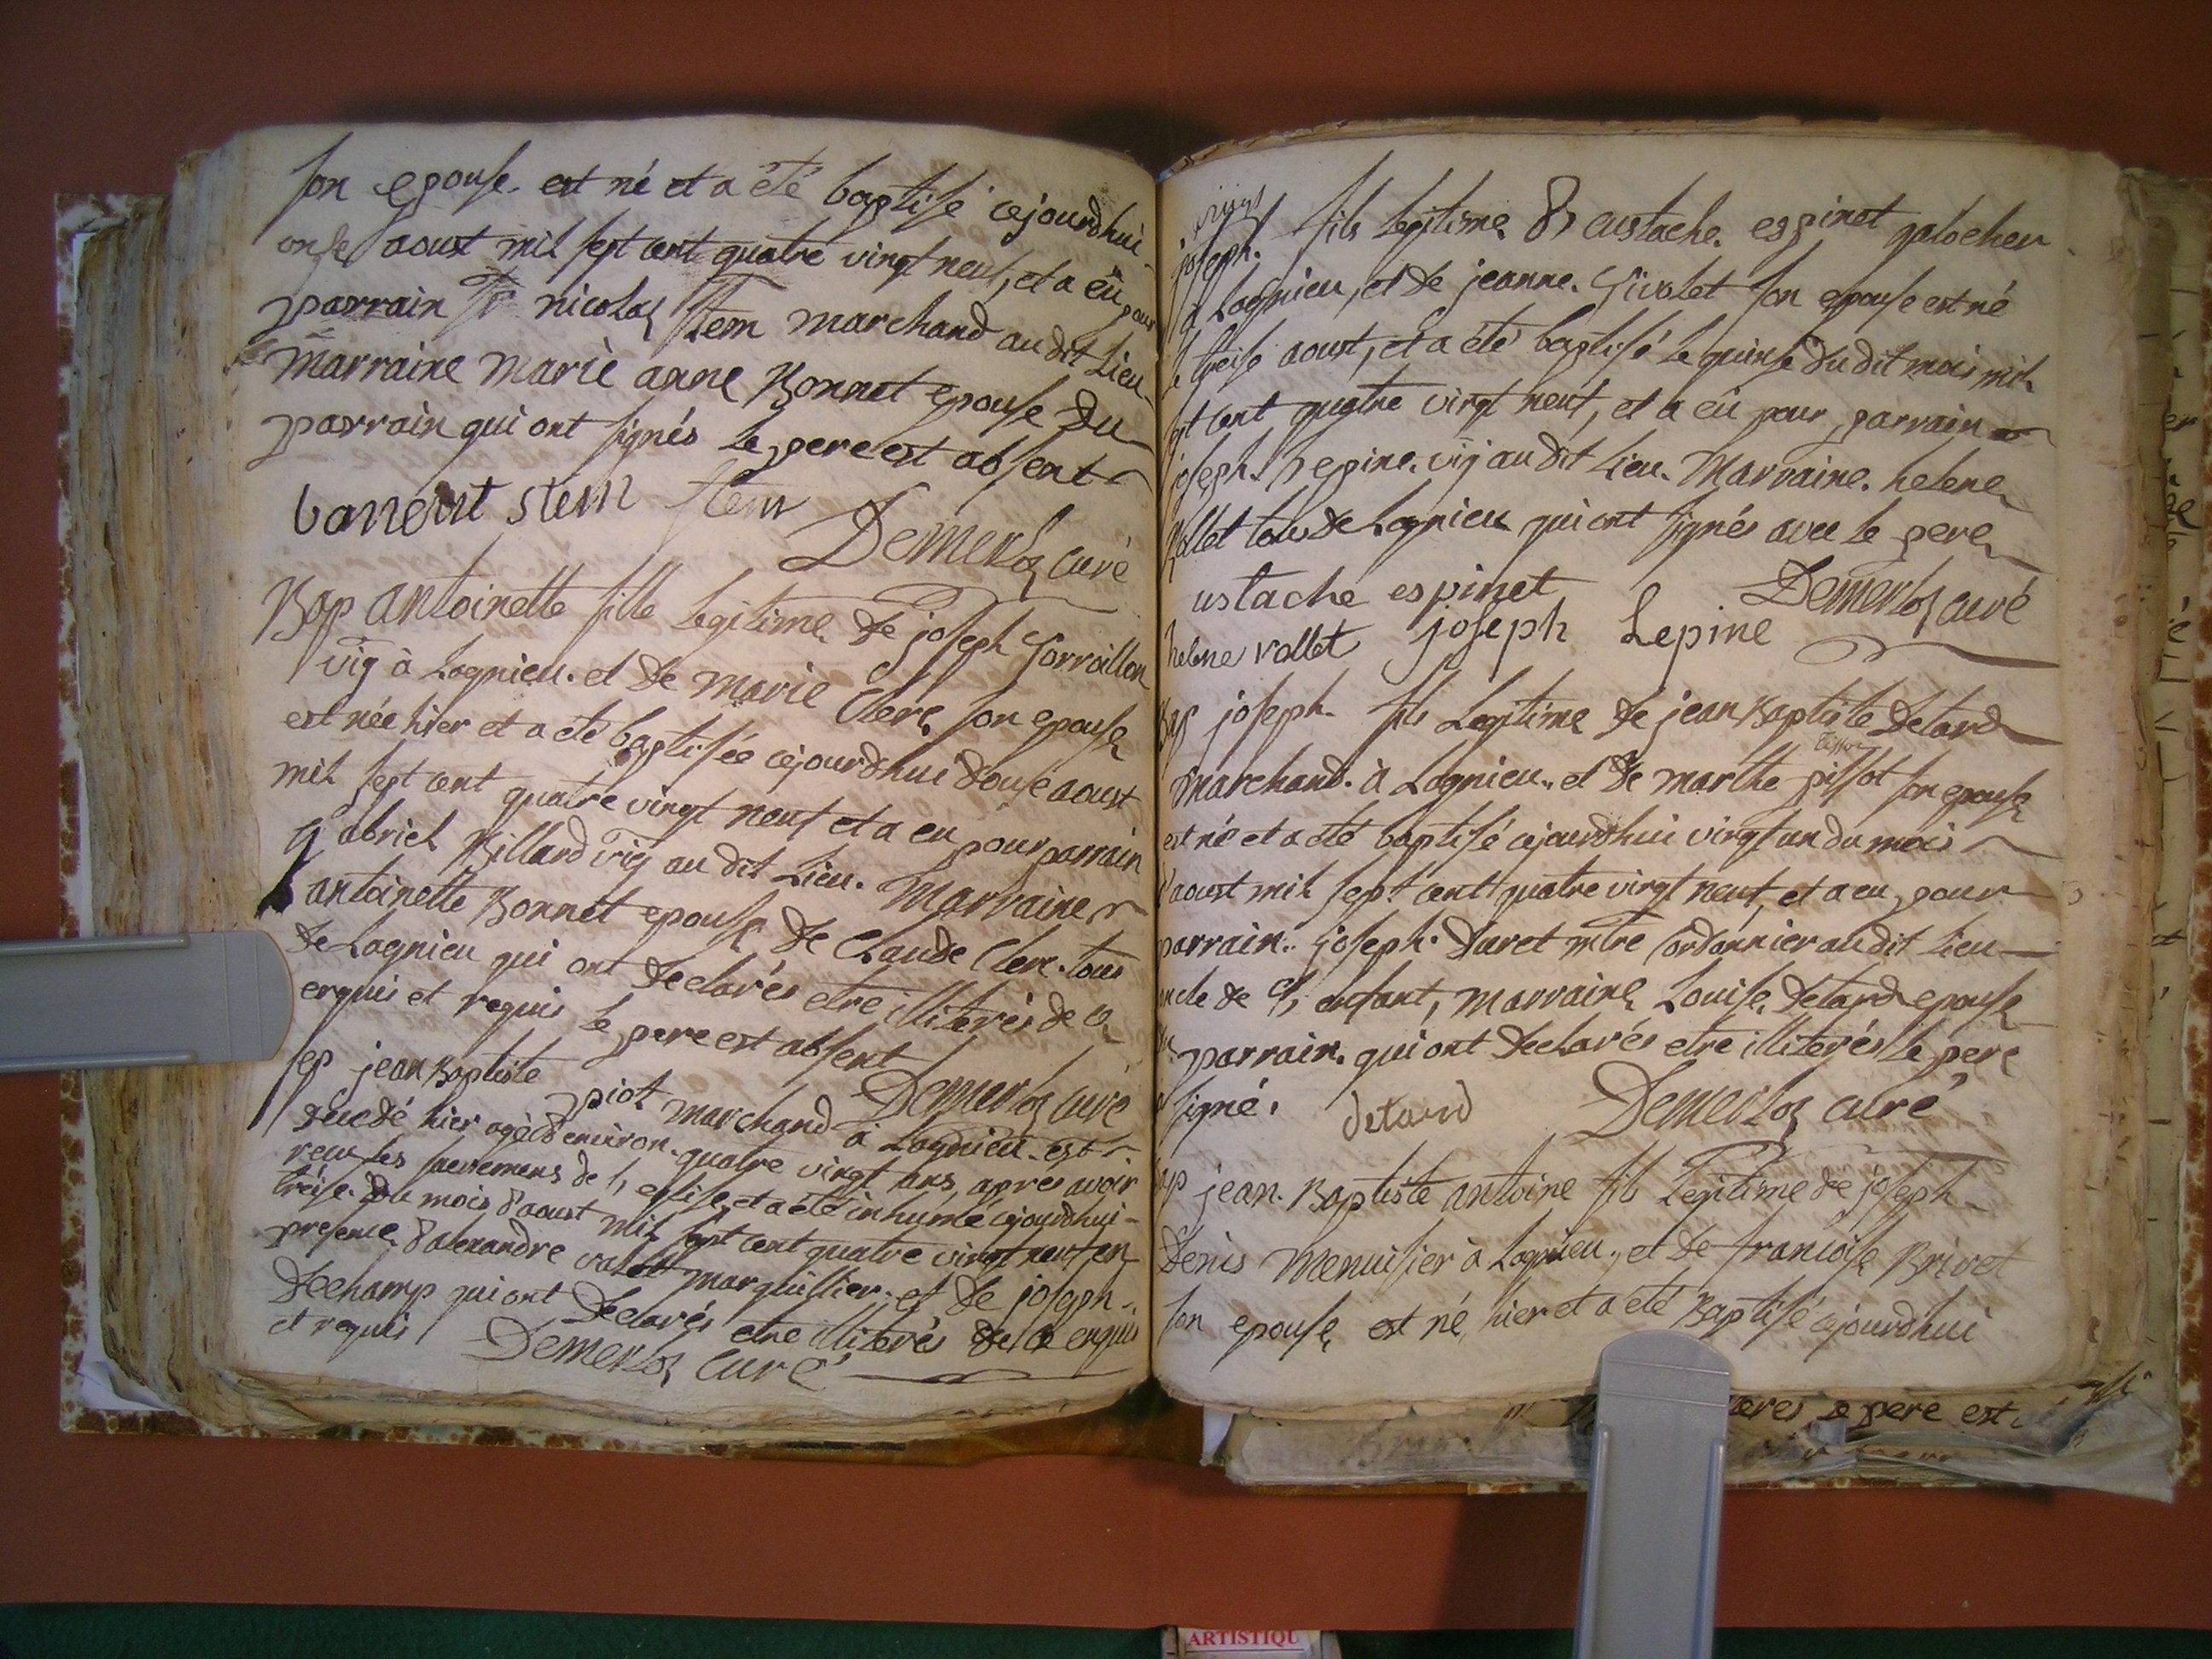 son epouse est né et a été baptisé cejourdhui
onse aoust mil sept cent quatre vingt neuf, et a eû pour
parrain nicolas Stem marchand au dit Lieu
marraine marie anne Bonnet epouse du
parrain qui ont signés le pere est absent
Stem
Demerloz curé
Bap antoinette fille Legitime de joseph Gorraillon
vig à Lagnieu. et de marie Clerc son epouse
est née hier et a été baptisée cejourdhui douse aoust
mil sept cent quatre vingt neuf et a eu pour parrain
gabriel Billard vig au dit Lieu. Marraine
antoinette Bonnet epouse de Claude Clerc. tous
de Lagnieu qui ont declarés etre illiterés de ce
enquis et requis le pere est absent
Demerloz curé
sep jean Baptiste piot marchand à Lagnieu est
decedé hier agé d'environ quatre vingt ans apres avoir
reçu les sacremens de l'eglise, et a été inhumé cejourdhui
treise du mois d'aoust mil sept cent quatre vingt neuf en
presence d'alexandre vallet marguillier. et de joseph
Dechamp qui ont declarés etre illiterés de ce enquis
et requis
Demerloz curé
joseph. fils legitime d'eustache. espinet galocheu
à Lagnieu, et de jeanne. Givolet son epouse est né
le treise aoust, et a été baptisé le quinse du dit mois mil
sept cent quatre vingt neuf, et a eû pour parrain
joseph. Lepine. vig au dit Lieu. Marraine. helene
vollet tous de Lagnieu qui ont signés avec le pere
ustache espinet Demerloz curé
helene vollet joseph Lepine
Bap joseph. fils Legitime de jean Baptiste Detard
tissot
marchand. à Lagnieu. et de marthe pissot son epouse
est né et a été baptisé cejourdhui vingt un du mois
d'aoust mil sept cent quatre vingt neuf, et a eu pour
parrain. joseph. Duret mtre Cordonnier au dit Lieu
oncle de l'enfant, marraine Louise Detard epouse
du parrain. qui ont declarés etre illiterés le pere
a signé. detard Demerloz curé
Bap jean. Baptiste antoine fils Legitime de joseph
Denis menuisier à Lagnieu, et de francoise Brivet
son epouse est né hier et a été Baptisé cejourdhui
pere est
ARTISTIQU